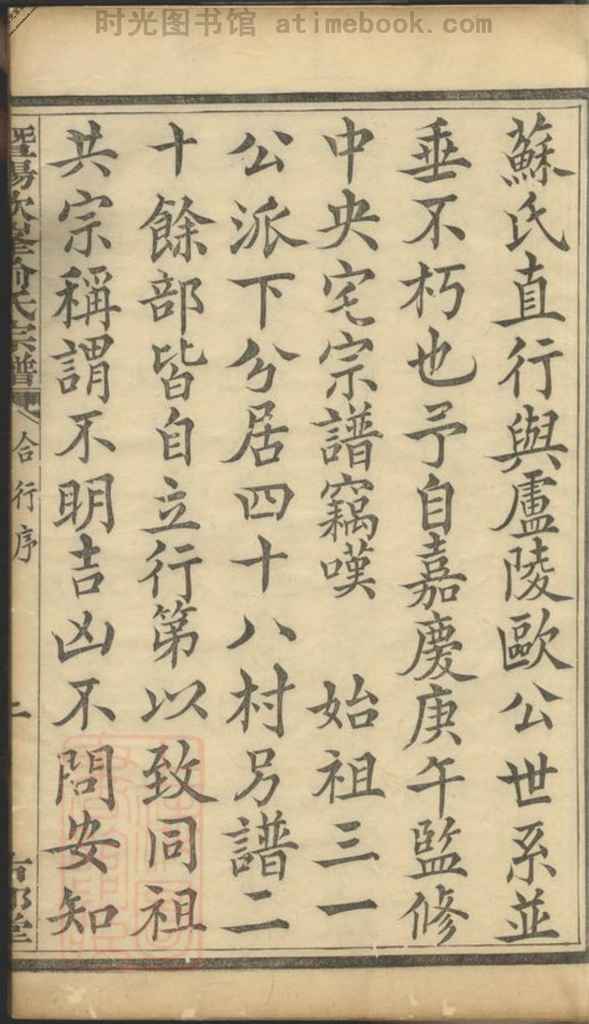 时光图书馆 atimebook.com
蘇氏直行與廬陵歐公世系並
垂不朽也予自嘉慶庚午監修
中央宅宗譜竊嘆 始祖三一
公派下分居四十八村另譜二
十餘部皆自立行第以致同祖
共宗稱謂不明吉凶不問安知
合行序
二